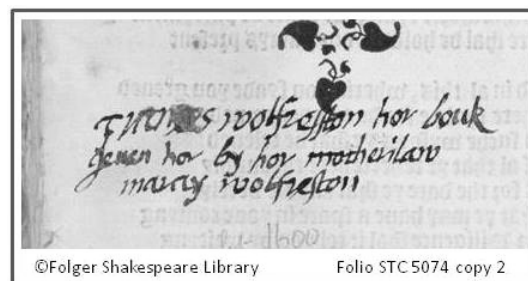 wolfreston hor bouk
geuen hor by hor motherilaw
marey wolfreston
1600
©Folger Shakespeare Library Folio STC 5074 copy 2